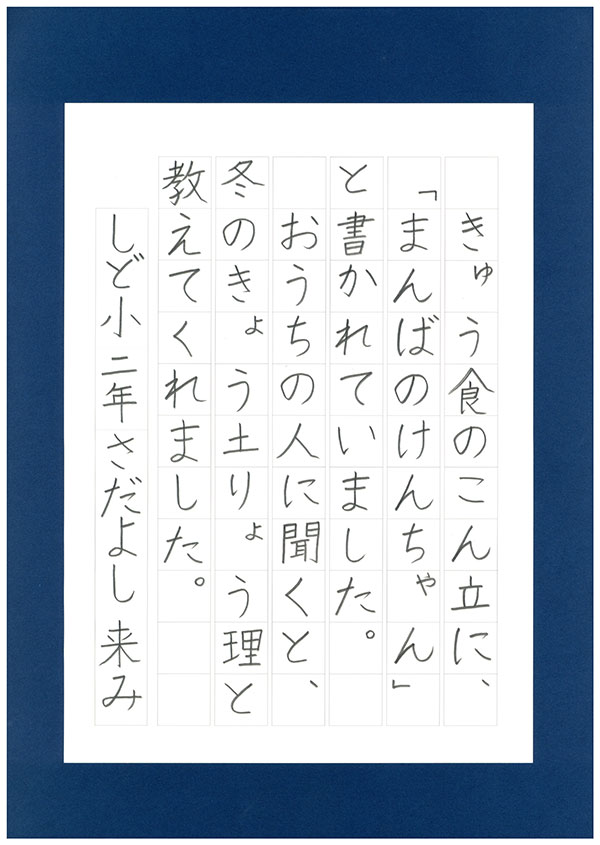 きゅう食のこん立に、
「まんばのけんちゃん」
と書かれていました。
おうちの人に聞くと、
冬のきょう土りょう理と
教えてくれました。
しど小二年さだよし来み